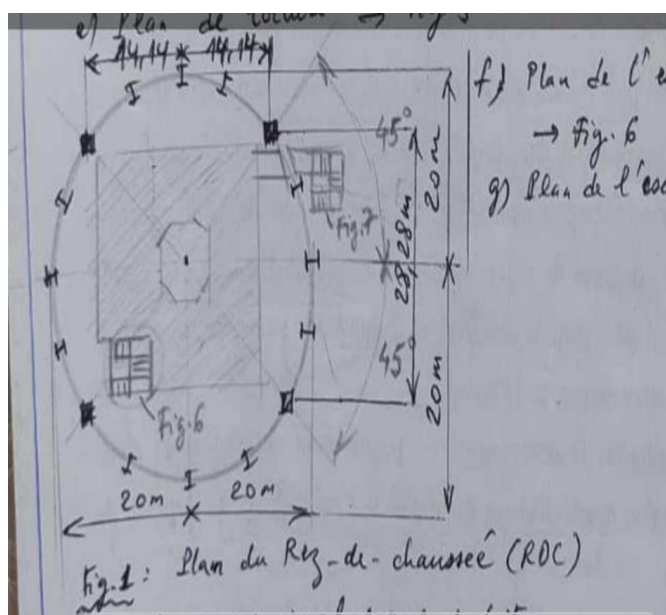 e) Plan de
14,14 14,14
f) Plan de l'
→ Fig. 6
g) Plan de l'esc
45°
20 m
Fig. 7
28,28 m
45°
20 m
Fig. 6
20 m 20 m
Fig. 1 : Plan du Rez-de-chaussée (RDC)